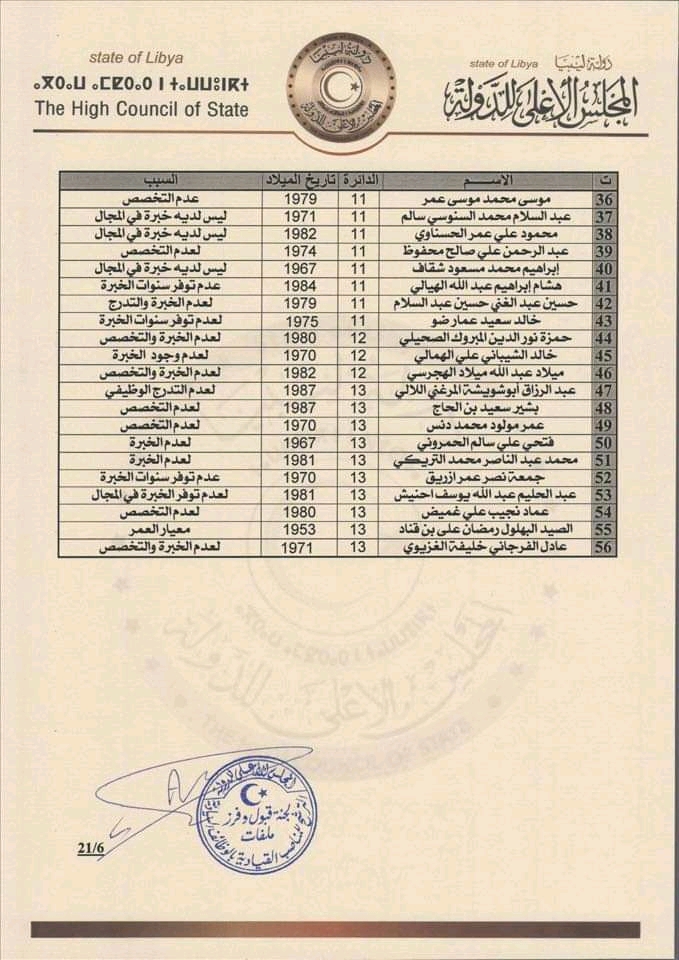 state of Libya
ⴰⵅⵔⴰⵡ ⴰⵎⵇⵔⴰⵏ ⵏ ⵜⴰⵡⵡⵓⵏⴽⵜ
The High Council of State
دولة ليبيا
state of Libya
المجلس الأعلى للدولة
ت الاسم الدائرة تاريخ الميلاد السبب
36 موسى محمد موسى عمر 11 1979 عدم التخصص
37 عبد السلام محمد السنوسي سالم 11 1971 ليس لديه خبرة في المجال
38 محمود علي عمر الحسناوي 11 1982 ليس لديه خبرة في المجال
39 عبد الرحمن علي صالح محفوظ 11 1974 لعدم التخصص
40 إبراهيم محمد مسعود شقاف 11 1967 ليس لديه خبرة في المجال
41 هشام إبراهيم عبد الله الهيالي 11 1984 عدم توفر سنوات الخبرة
42 حسين عبد الغني حسين عبد السلام 11 1979 لعدم الخبرة والتدرج
43 خالد سعيد عمار ضو 11 1975 لعدم توفر سنوات الخبرة
44 حمزة نور الدين المبروك الصحيلي 12 1980 لعدم الخبرة والتخصص
45 خالد الشيباني علي الهمالي 12 1970 لعدم وجود الخبرة
46 ميلاد عبد الله ميلاد الهجرسي 12 1982 لعدم الخبرة والتخصص
47 عبد الرزاق أبوشويشة المرغني اللالي 13 1987 لعدم التدرج الوظيفي
48 بشير سعيد بن الحاج 13 1987 لعدم التخصص
49 عمر مولود محمد دنس 13 1970 لعدم التخصص
50 فتحي علي سالم الحمروني 13 1967 لعدم الخبرة
51 محمد عبد الناصر محمد التريكي 13 1981 لعدم الخبرة
52 جمعة نصر عمر ازريق 13 1970 عدم توفر سنوات الخبرة
53 عبد الحليم عبد الله يوسف احنيش 13 1981 لعدم توفر الخبرة في المجال
54 عماد نجيب علي غميض 13 1980 لعدم التخصص
55 الصيد البهلول رمضان على بن قناد 13 1953 معيار العمر
56 عادل الفرجاني خليفة الغزيوي 13 1971 لعدم الخبرة والتخصص
المجلس الأعلى للدولة
THE HIGH COUNCIL OF STATE
المجلس الأعلى للدولة
لجنة قبول وفرز
ملفات
للمناصب القيادية بالوظائف السيادية
21/6